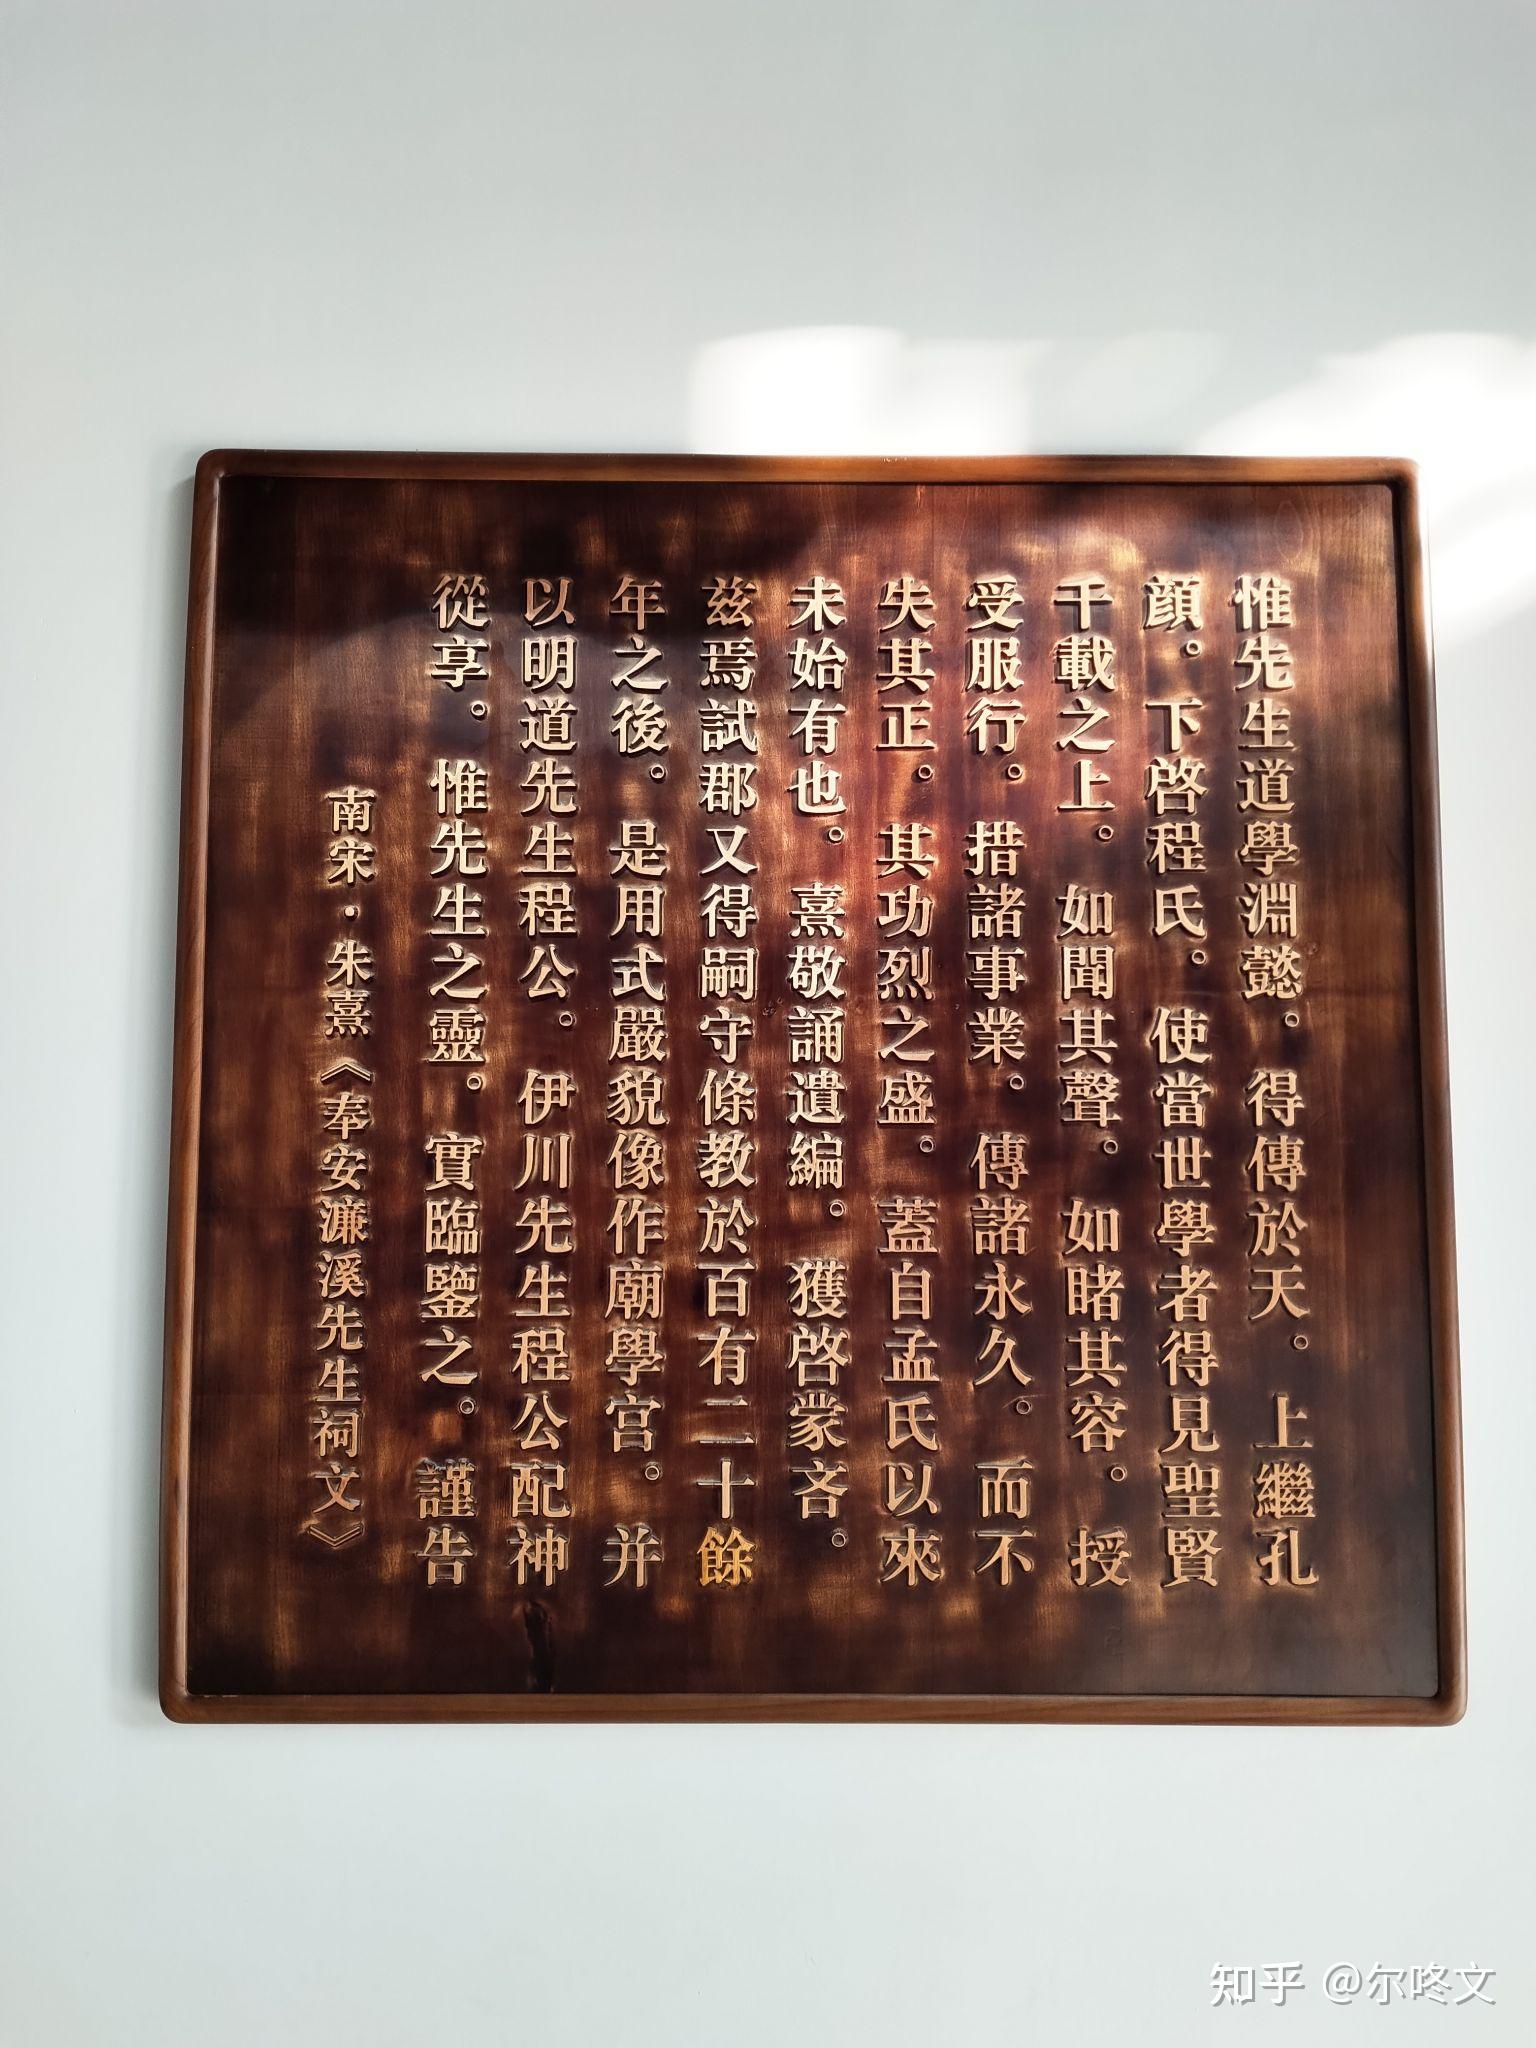 惟先生道學淵懿。得傳於天。上繼孔
顔。下啓程氏。使當世學者得見聖賢
千載之上。如聞其聲。如睹其容。授
受服行。措諸事業。傳諸永久。而不
失其正。其功烈之盛。蓋自孟氏以來
未始有也。熹敬誦遺編。獲啓蒙吝。
兹焉試郡又得嗣守條教於百有二十餘
年之後。是用式嚴貌像作廟學宮。并
以明道先生程公。伊川先生程公配神
從享。惟先生之靈。實臨鑒之。謹告
南宋·朱熹《奉安濂溪先生祠文》
知乎 @尔咚文